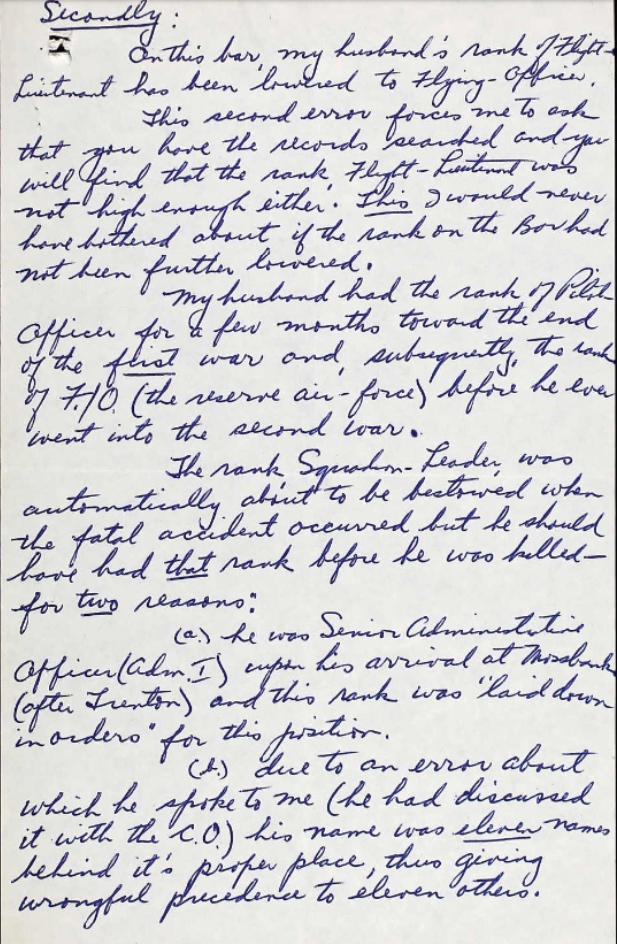 Secondly:
On this bar, my husband's rank of Flight-
Lieutenant has been lowered to Flying-Officer.
This second error forces me to ask
that you have the records searched and you
will find that the rank, Flight-Lieutenant was
not high enough either. This I would never
have bothered about if the rank on the Bar had
not been further lowered.
My husband had the rank of Pilot-
Officer for a few months toward the end
of the first war and, subsequently, the rank
of F./O. (the reserve air-force) before he ever
went into the second war.
The rank Squadron-Leader, was
automatically about to be bestowed when
the fatal accident occurred but he should
have had that rank before he was killed—
for two reasons:
(a.) he was Senior Administrative
Officer (Adm. I) upon his arrival at Mossbank
(after Trenton) and this rank was "laid down
in orders" for this position.
(b.) due to an error about
which he spoke to me (he had discussed
it with the C.O.) his name was eleven names
behind it's proper place, thus giving
wrongful precedence to eleven others.